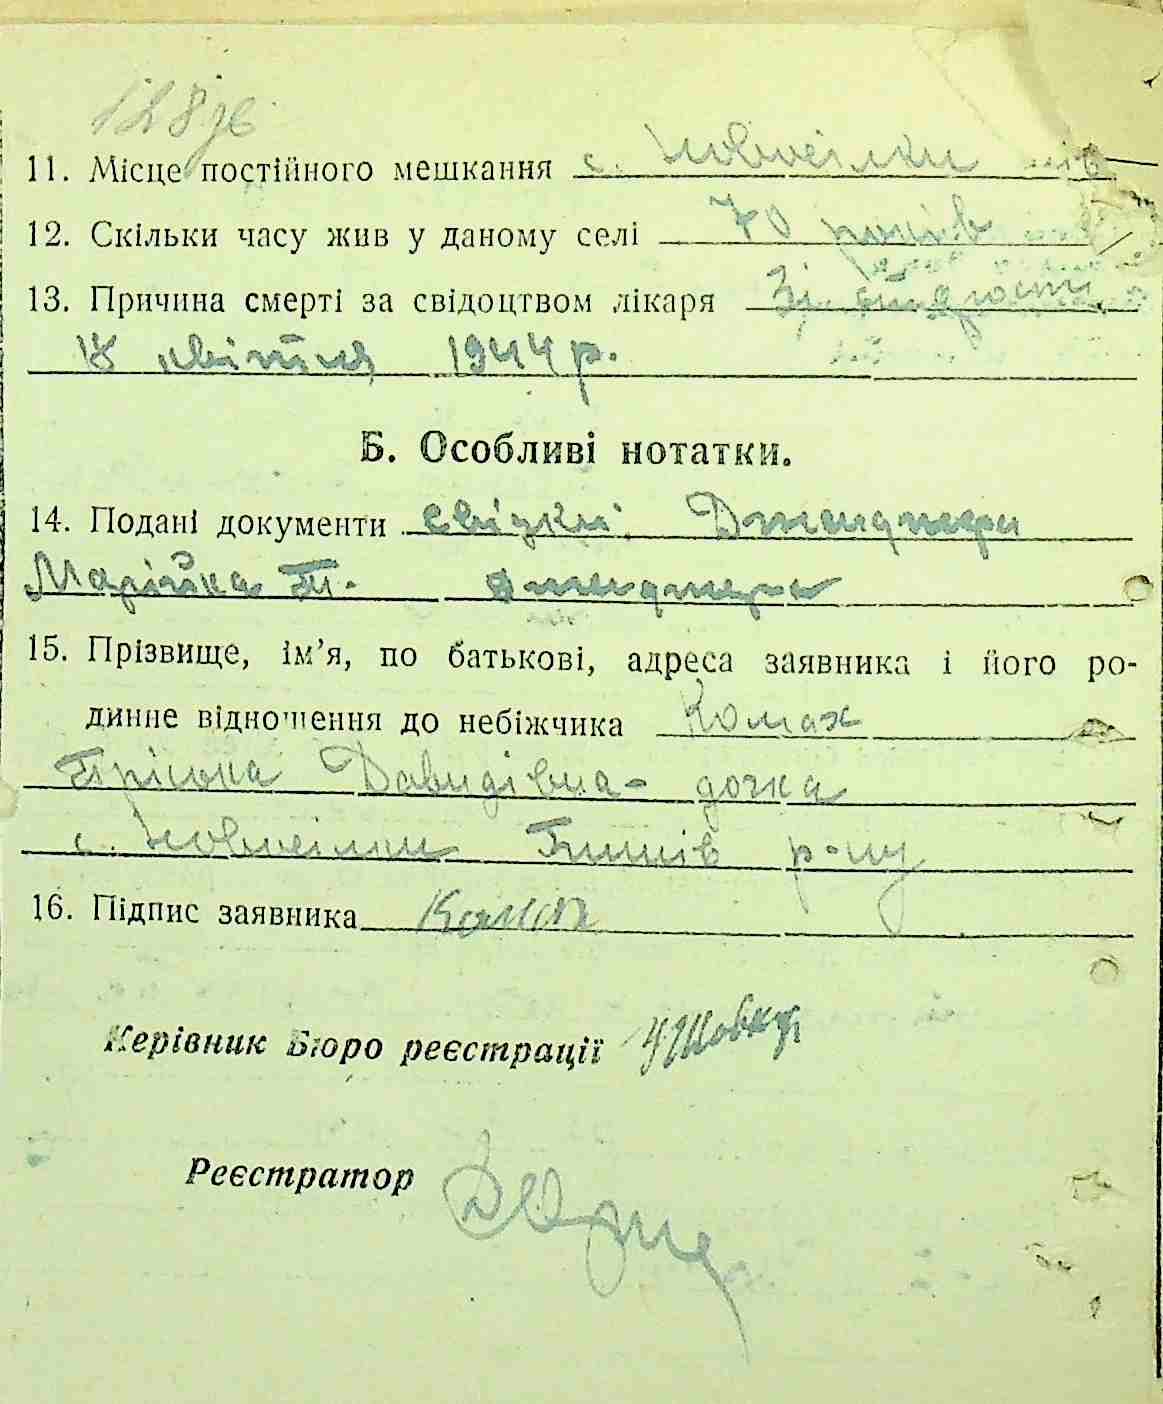 128 зв
11. Місце постійного мешкання с. Новосілки
12. Скільки часу жив у даному селі 70 років
13. Причина смерті за свідоцтвом лікаря Зі старости
18 квітня 1944 р.
Б. Особливі нотатки.
14. Подані документи свідки:
Марійка Т.
15. Прізвище, ім’я, по батькові, адреса заявника і його ро-
динне відношення до небіжчика Комах
Пріська Давидівна - дочка
с. Новосілки р-ну
16. Підпис заявника Комах
Керівник Бюро реєстрації
Реєстратор